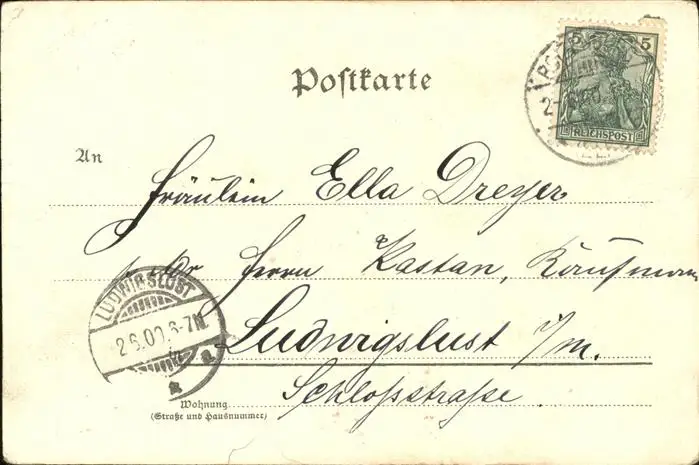 5 5
REICHSPOST
Postkarte
An
Fräulein Ella Dreyer
Herrn Kastan, Kaufmann
LUDWIGSLUST
2.6.00.6-7N.
a
Ludwigslust i/m.
Schloßstraße.
Wohnung
(Straße und Hausnummer)